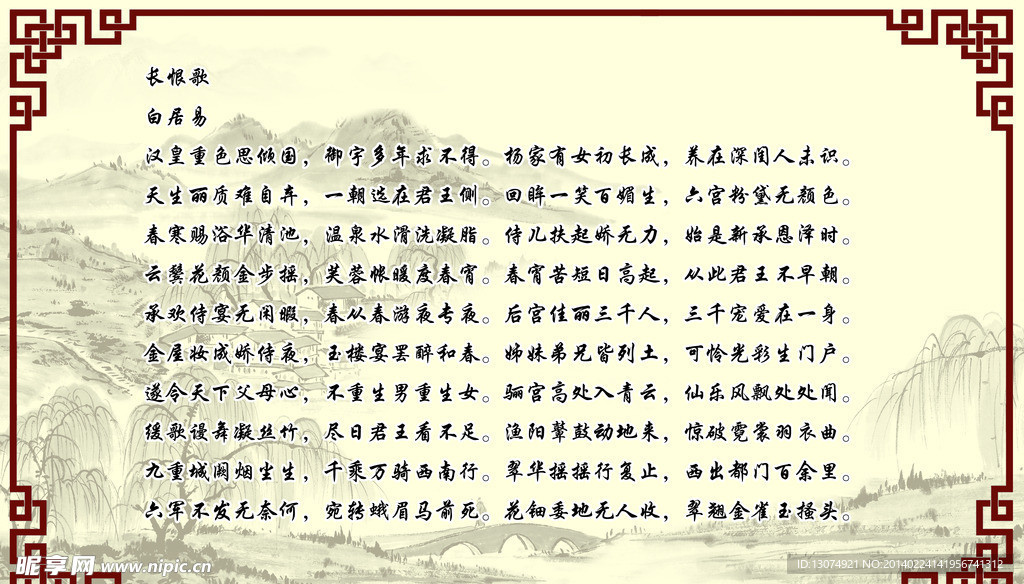 长恨歌
白居易
汉皇重色思倾国，御宇多年求不得。杨家有女初长成，养在深闺人未识。
天生丽质难自弃，一朝选在君王侧。回眸一笑百媚生，六宫粉黛无颜色。
春寒赐浴华清池，温泉水滑洗凝脂。侍儿扶起娇无力，始是新承恩泽时。
云鬓花颜金步摇，芙蓉帐暖度春宵。春宵苦短日高起，从此君王不早朝。
承欢侍宴无闲暇，春从春游夜专夜。后宫佳丽三千人，三千宠爱在一身。
金屋妆成娇侍夜，玉楼宴罢醉和春。姊妹弟兄皆列土，可怜光彩生门户。
遂令天下父母心，不重生男重生女。骊宫高处入青云，仙乐风飘处处闻。
缓歌谩舞凝丝竹，尽日君王看不足。渔阳鼙鼓动地来，惊破霓裳羽衣曲。
九重城阙烟尘生，千乘万骑西南行。翠华摇摇行复止，西出都门百余里。
六军不发无奈何，宛转蛾眉马前死。花钿委地无人收，翠翘金雀玉搔头。
昵享网 www.nipic.cn
ID:13074921 NO:20140224141956741312